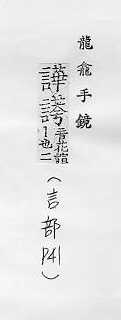 龍龕手鏡
譁
音花諠
丨也二
（言部P41）